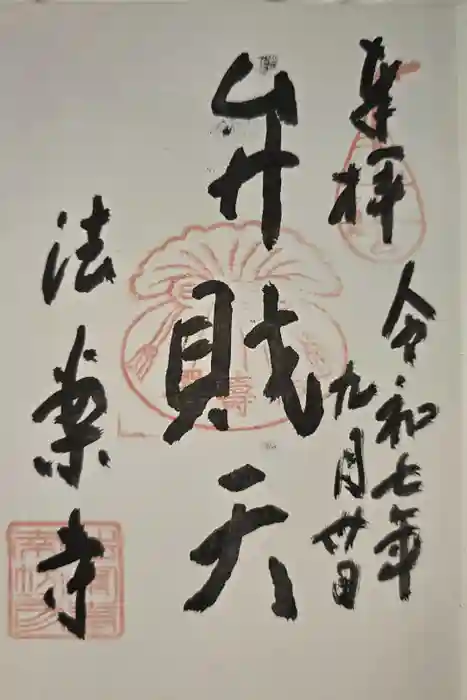 奉拝
令和七年
九月廿日
弁財天
法楽寺
壽